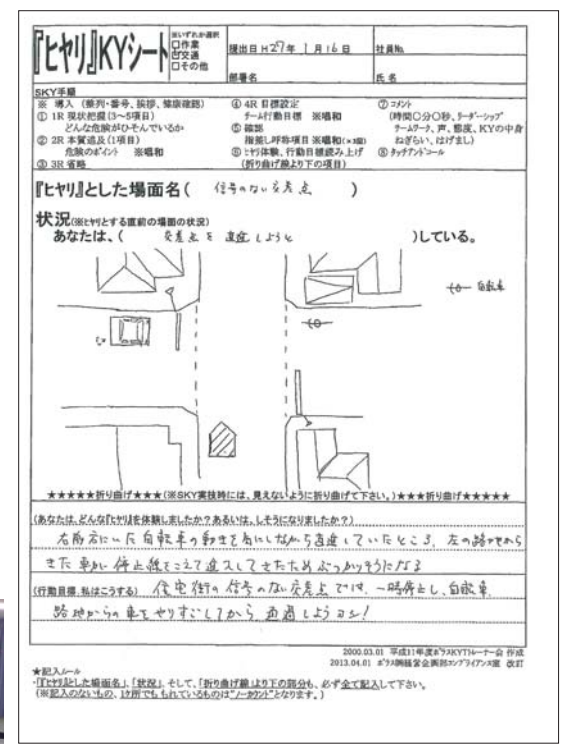 『ヒヤリ』KYシート
※いずれか選択
□作業
☑交通
□その他
提出日 H27年 1月16日
社員No.
部署名
氏名
SKY手順
※ 導入（整列・番号、挨拶、健康確認）
① 1R 現状把握(3～5項目)
どんな危険がひそんでいるか
② 2R 本質追及(1項目)
危険のポイント ※唱和
③ 3R 省略
④ 4R 目標設定
チーム行動目標 ※唱和
⑤ 確認
指差し呼称項目 ※唱和(×3回)
⑥ ヒヤリ体験、行動目標読み上げ
(折り曲げ線より下の項目)
⑦ コメント
(時間○分○秒、リーダーシップ
チームワーク、声、態度、KYの中身
ねぎらい、はげまし)
⑧ タッチアンドコール
『ヒヤリ』とした場面名( 信号のない交差点 )
状況(※ヒヤリとする直前の場面の状況)
あなたは、( 交差点を直進しようと )している。
自転車
★★★★★折り曲げ★★★(※SKY実技時には、見えないように折り曲げて下さい。)★★★折り曲げ★★★★★
(あなたは、どんな『ヒヤリ』を体験しましたか？あるいは、しそうになりましたか？)
右前方にいた自転車の動きを気にしながら直進していたところ、左の路地から
きた車が停止線をこえて進入してきたためぶつかりそうになる
(行動目標、私はこうする) 住宅街の信号のない交差点では、一時停止し、自転車、
路地からの車をやりすごしてから通過しようヨシ!
2000.03.01 平成11年度ポラスKYTトレーナー会 作成
2013.04.01 ポラス㈱経営企画部コンプライアンス課 改訂
★記入ルール
・『『ヒヤリ』とした場面名』、「状況」、そして、「折り曲げ線」より下の部分も、必ず全て記入して下さい。
(※記入のないもの、1ケ所でももれているものは"ノーカウント"となります。)